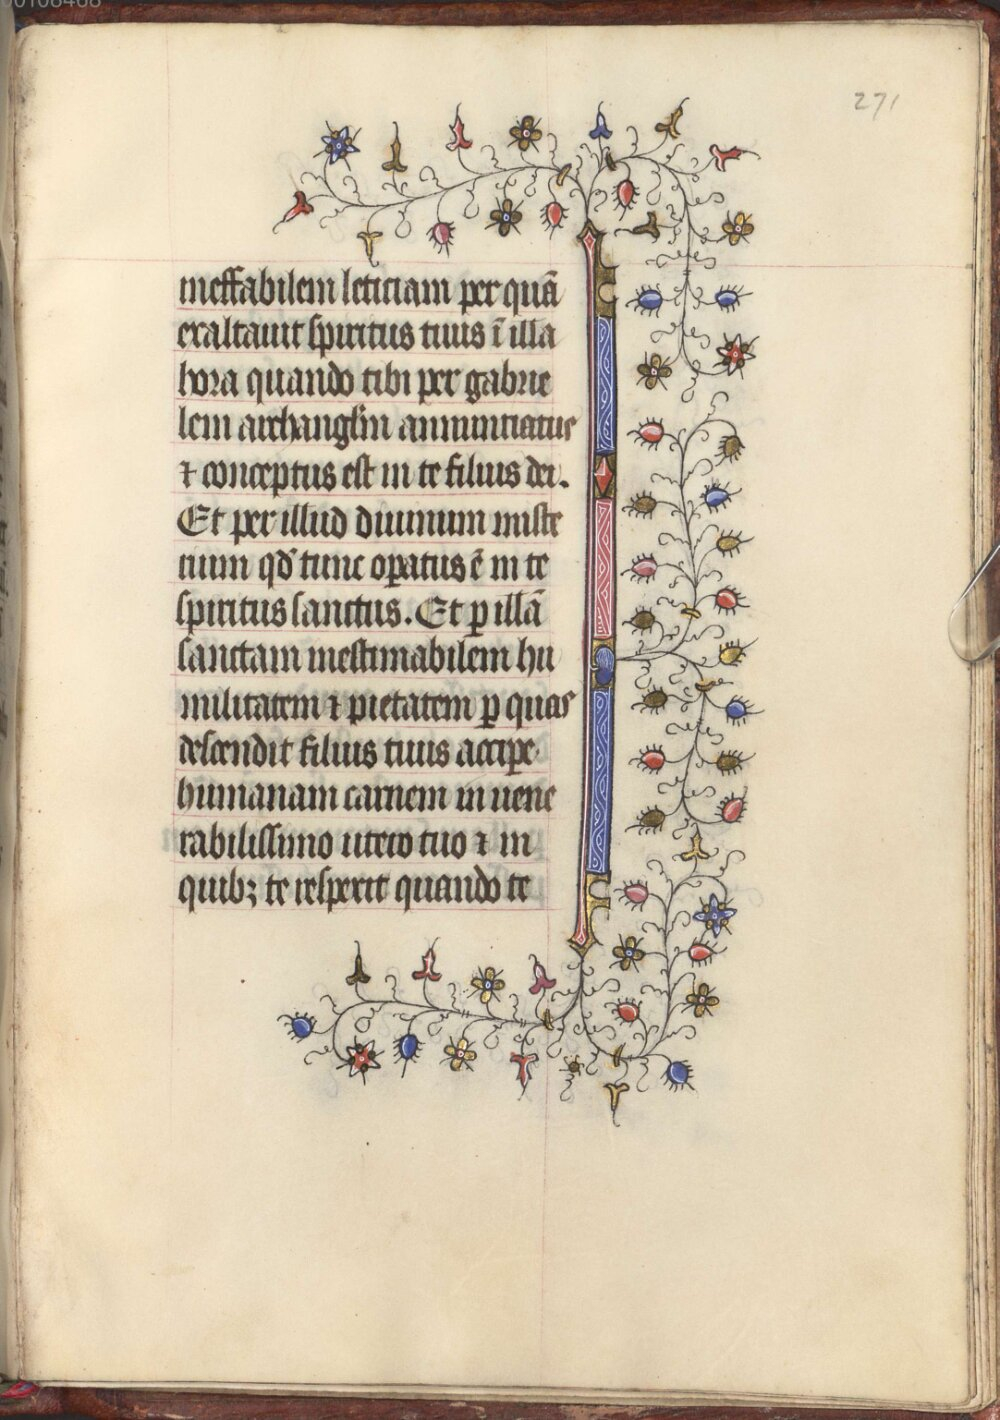 00108468
271
ineffabilem leticiam per quã
exaltauit spiritus tuus ĩ illa
hora quando tibi per gabrie
lem archanglm̃ annuntiatus
⁊ conceptus est in te filius dei.
Et per illud diuinum miste
rium qđ tunc oꝑatus ẽ in te
spiritus sanctus. Et ꝑ illã
sanctam inestimabilem hu
militatem ⁊ pietatem ꝑ quas
descendit filius tuus accipe
humanam carnem in uene
rabilissimo utero tuo ⁊ in
quibꝫ te respexit quando te